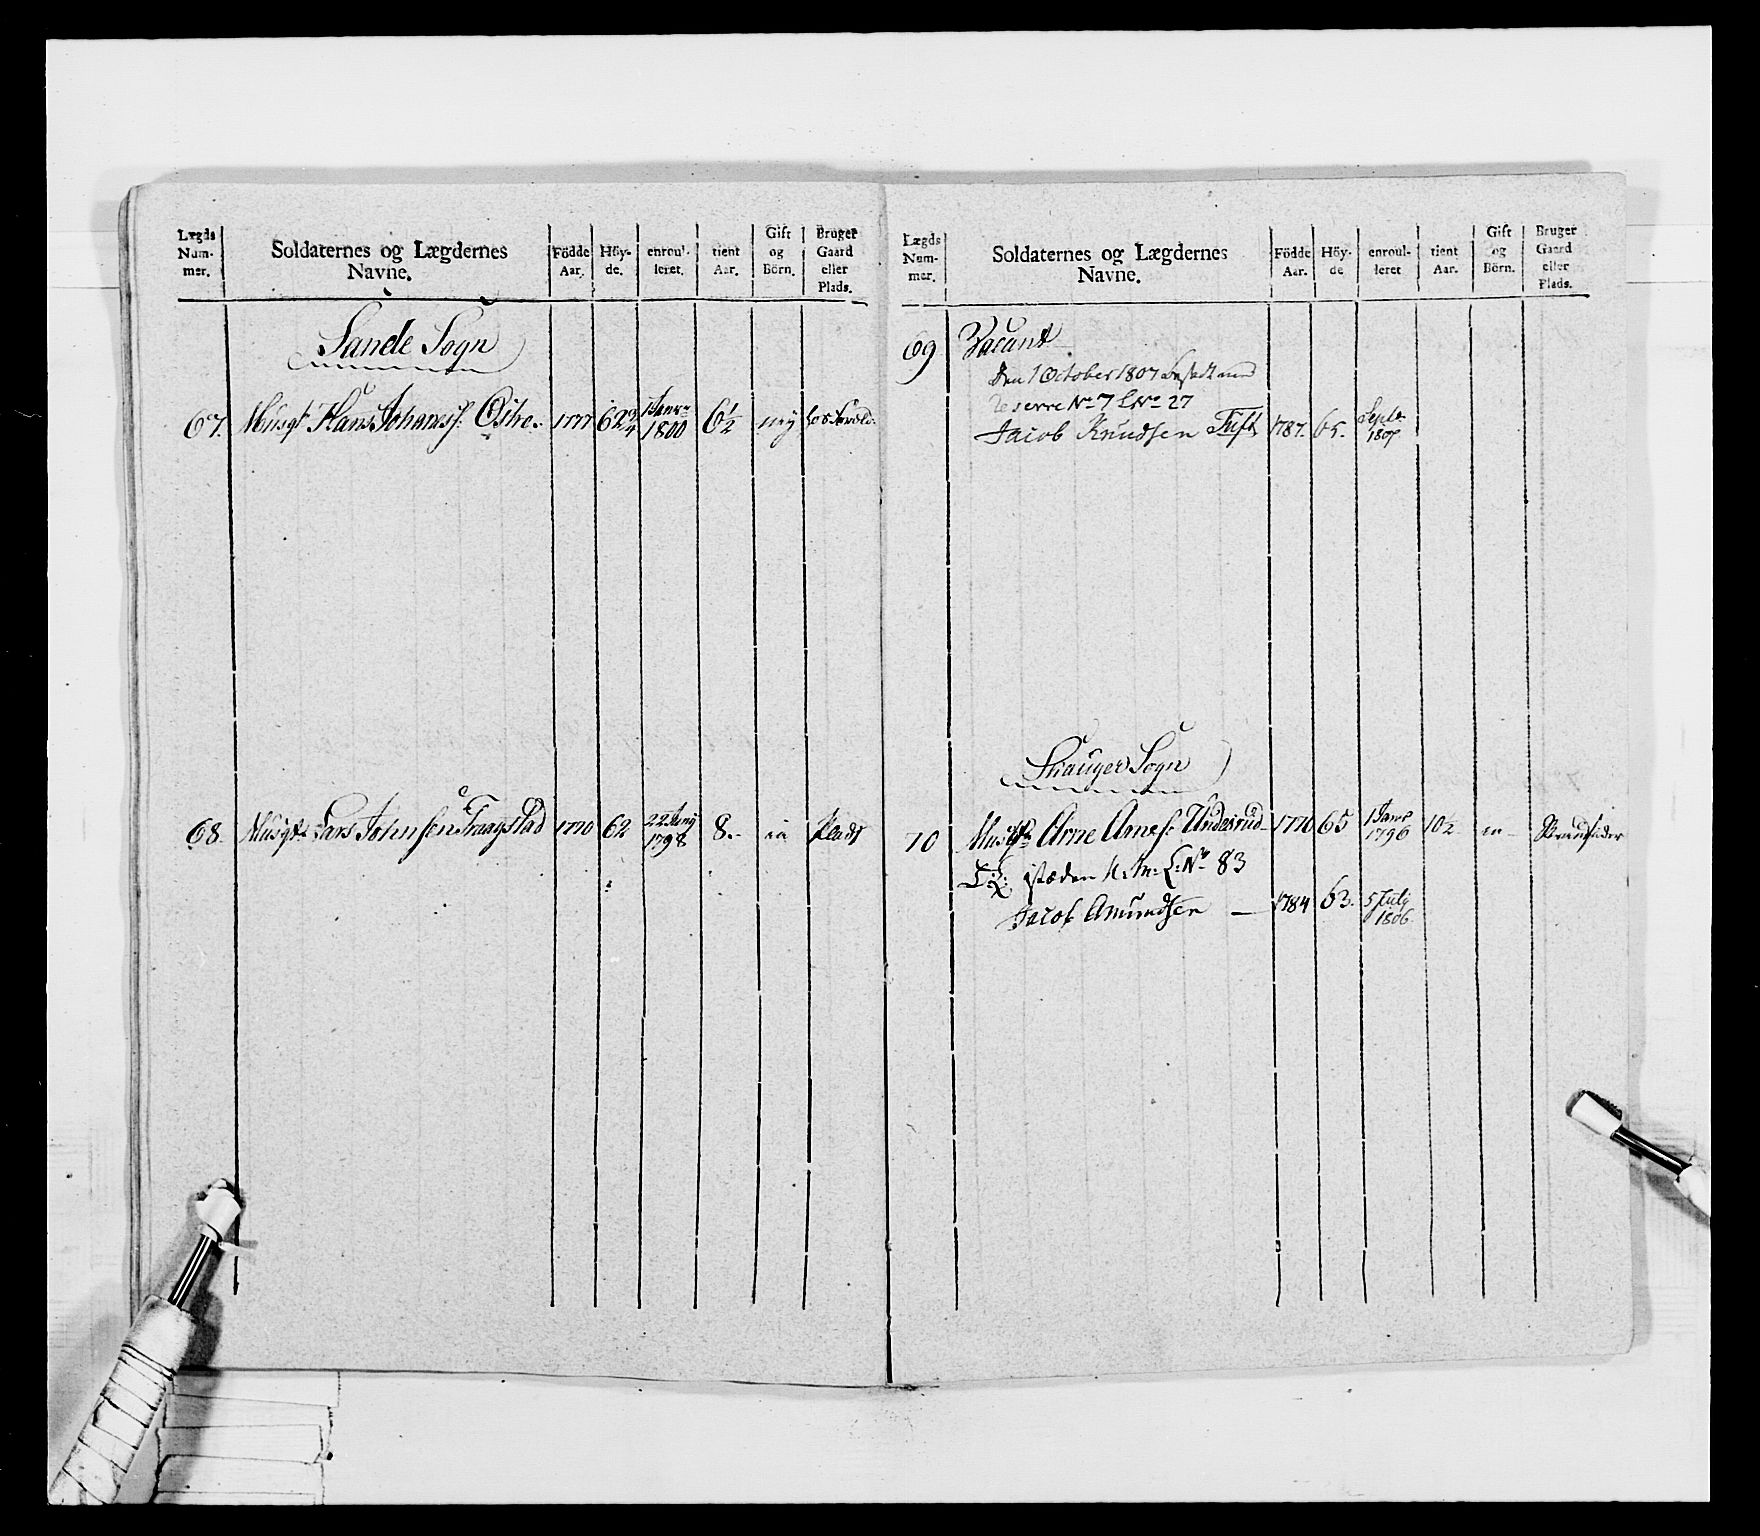 Lægds Num- mer. Soldaternes og Lægdernes Navne. Födde Aar. Höy- de. enroul- leret. tient Aar. Gift og Börn. Bruger Gaard eller Plads.
Sande Sogn
67. Musqt Hans Johaness: Østre. 1777 62 3/4 1 Janr 1800 6 1/2 ney
68. Musqt Lars Johnsen 1770 62 22 Juny 1798 8. Plads
Lægds Num- mer. Soldaternes og Lægdernes Navne. Födde Aar. Höy- de enroul- leret tient Aar. Gift og Börn. Bruger Gaard eller Plads.
69 Vacant
Den 1 October 1807 besadt med
Reserve No 7 L No 27
Jacob Knudsen Tuft 1787. 65. Septr 1807
Skauger Sogn
70 Musqt Arne Arnes: Undesrud 1770 65 1 Janr 1796 10 1/2 Strandsider
istæden N: M: L: No 83
Jacob Amundsen — 1784 63. 5 July 1806